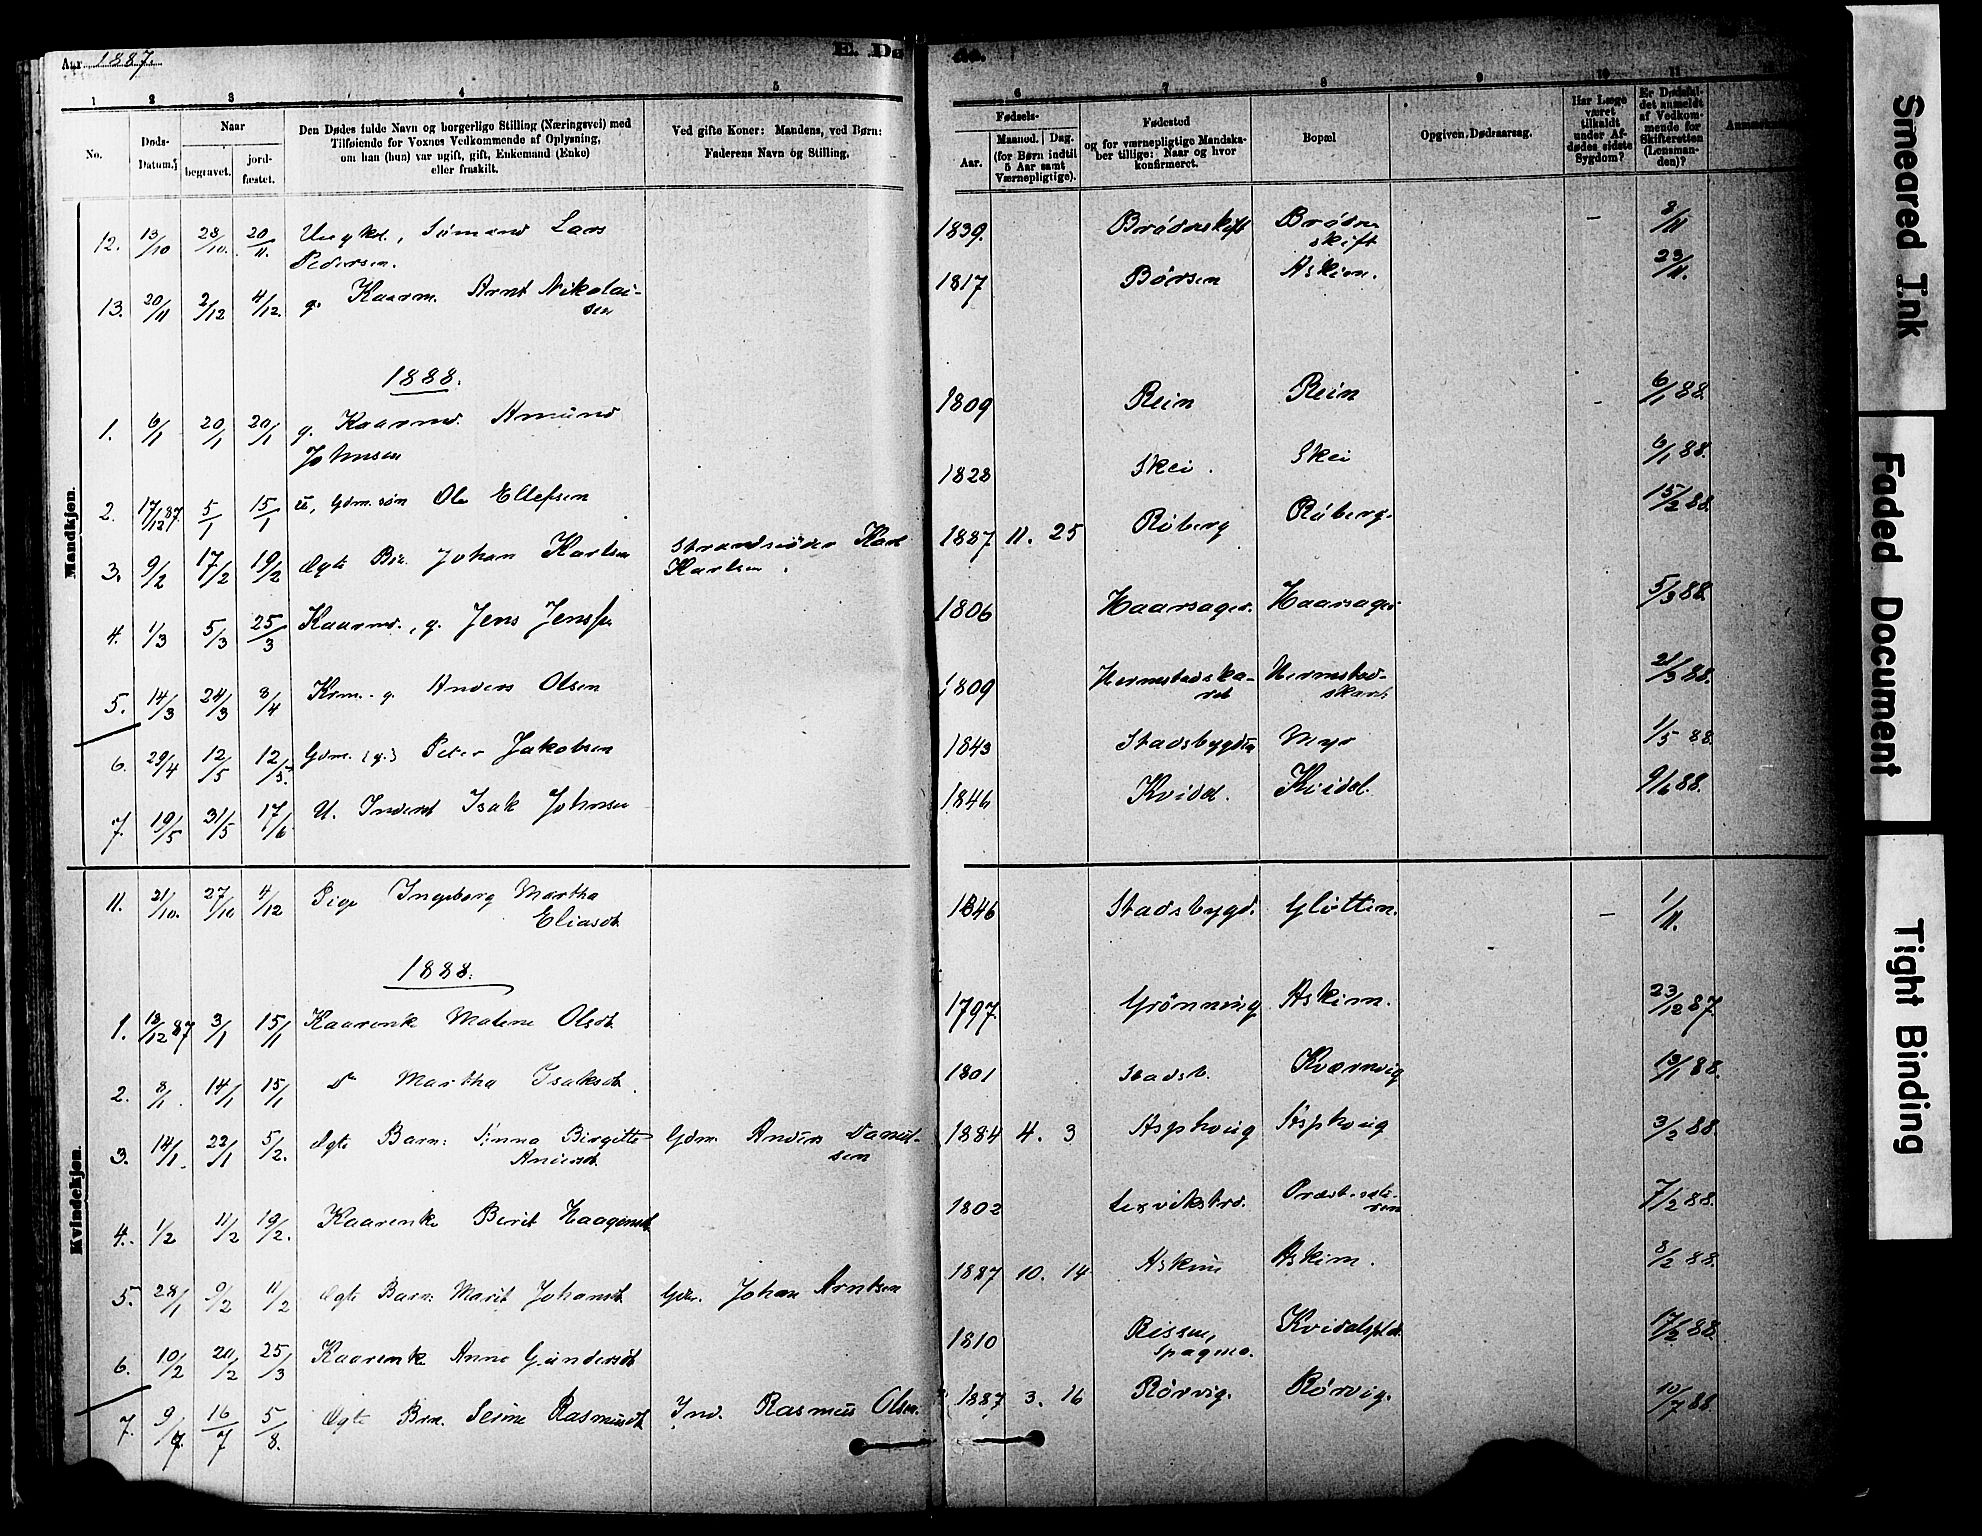 Aar 1887.
E. Dø
de.
1 2 3 4 5 6 7 8 9 10 11
No.
Døds-Datum.
Naar
begravet.
jord-fæstet.
Den Dødes fulde Navn og borgerlige Stilling (Næringsvei) med
Tilføiende for Voxnes Vedkommende af Oplysning,
om han (hun) var ugift, gift, Enkemand (Enke)
eller fraskilt.
Ved gifte Koner: Mandens, ved Børn:
Faderens Navn og Stilling.
Fødsels-
Aar.
Maaned. Dag.
(for Børn indtil
5 Aar samt
Værnepligtige).
Fødested
og for værnepligtige Mandska-
ber tillige: Naar og hvor
konfirmeret.
Bopæl
Opgiven Dødsaarsag.
Har Læge
været
tilkaldt
under Af-
dødes sidste
Sygdom?
Er Dødsfal-
det anmeldt
af Vedkom-
mende for
Skifteretten
(Lensman-
den)?
Mandkjøn.
12. 13/10 28/10. 20/11. Ungkal., Sømand Lars 1839. Brødreskift Brødre - 2/11
Pedersen. skift
13. 20/11 2/12 4/12. g. Kaarm. Arnt Nikolai- 1817 Børsen Askim. 23/11.
sen
1888.
1. 6/1 20/1 20/1 g. Kaarmd. Amund 1809 Rein Rein - 6/1 88.
Johnsen
2. 17/12 87. 5/1 15/1 u, Gdm.søn Ole Ellefsen 1828 Skei. Skei 6/1 88.
3. 9/2 17/2 19/2 Ægte Bn. Johan Karlsen Strandsidder Karl 1887 11. 25 Røberg Røberg. 15/2 88.
Karlsen.
4. 1/3 5/3 25/3 Kaarmd., g. Jens Jenssen 1806 Haarsager. Haarsager 5/3 88.
5. 14/3 24/3 8/4 Krm. g. Anders Olsen 1809 Hermstadska- Hermstad- 21/3 88.
ret skaret
6. 29/4 12/5 12/5. Gdm. (g.) Peter Jakobsen 1843 Stadsbygden Myr 1/5 88.
7. 19/5 31/5 17/6 U. Inderst Isak Johnsen 1846 Kvidal. Kvidal. 9/6 88.
Kvindekjøn.
11. 21/10. 27/10 4/12 Pige Ingeborg Martha 1846 Stadsbygd. Gløtten. - 1/11.
Eliasdt.
1888.
1. 18/12 87 3/1 15/1 Kaarenk Malene Olsdt. 1797. Grønning Askim. 23/12 87.
2. 8/1. 14/1 15/1 Do Martha Isaksdt. 1801 Stadsb. Kværnvig 13/1 88.
3. 14/1. 23/1 5/2. Ægte Barn: Anna Birgitte Gdm. Anders Daniel- 1884 4. 3 Asphoug Asphoug 3/2 88.
Andersdt. sen
4. 1/2 11/2 19/2. Kaarenke Berit Haagensdt. 1802 Lexvikstrd. 7/2 88.
5. 28/1 9/2 11/2 Ægte Barn Marit Johansdt. Gdm. Johan Arntsen 1887 10. 14 Askim Askim. 8/2 88.
6. 10/2 20/2 25/3 Kaarenk Anne Gundersdt 1810 Rissen, Kvidalspld. 17/2 88.
7. 9/7. 16/7 5/8. Ægte Brn. Serine Rasmusdt. Ind. Rasmus Olsen. 1887 3. 16 Rørvig. Rørvig. 10/7 88.
Smeared Ink
Faded Document
Tight Binding